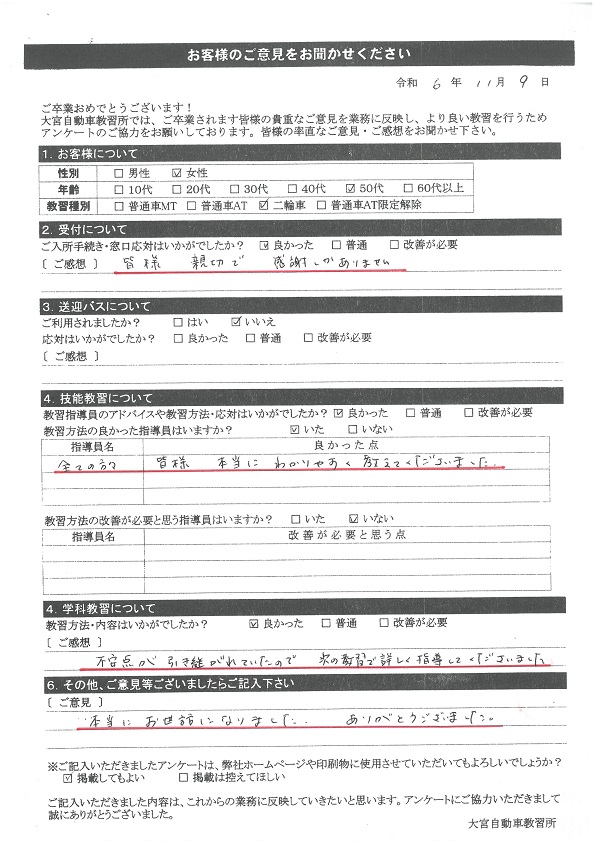 お客様のご意見をお聞かせください
令和 6 年 11 月 9 日
ご卒業おめでとうございます！
大宮自動車教習所では、ご卒業されます皆様の貴重なご意見を業務に反映し、より良い教習を行うため
アンケートのご協力をお願いしております。皆様の率直なご意見・ご感想をお聞かせ下さい。
1. お客様について
性別 □ 男性 ☑ 女性
年齢 □ 10代 □ 20代 □ 30代 □ 40代 ☑ 50代 □ 60代以上
教習種別 □ 普通車MT □ 普通車AT ☑ 二輪車 □ 普通車AT限定解除
2. 受付について
ご入所手続き・窓口応対はいかがでしたか？ ☑ 良かった □ 普通 □ 改善が必要
〔 ご感想 〕 皆様 親切で 感謝しかありません
3. 送迎バスについて
ご利用されましたか？ □ はい ☑ いいえ
応対はいかがでしたか？ □ 良かった □ 普通 □ 改善が必要
〔 ご感想 〕
4. 技能教習について
教習指導員のアドバイスや教習方法・応対はいかがでしたか？ ☑ 良かった □ 普通 □ 改善が必要
教習方法の良かった指導員はいますか？ ☑ いた □ いない
指導員名 良かった点
全ての方々 皆様 本当に わかりやすく 教えてくださいました。
教習方法の改善が必要と思う指導員はいますか？ □ いた ☑ いない
指導員名 改善が必要と思う点
4. 学科教習について
教習方法・内容はいかがでしたか？ ☑ 良かった □ 普通 □ 改善が必要
〔 ご感想 〕
不安点が 引き継がれていたので 次の教習で詳しく指導してくださいました
6. その他、ご意見等ございましたらご記入下さい
〔 ご意見 〕
本当に お世話になりました。 ありがとうございました。
※ご記入いただきましたアンケートは、弊社ホームページや印刷物に使用させていただいてもよろしいでしょうか？
☑ 掲載してもよい □ 掲載は控えてほしい
ご記入いただきました内容は、これからの業務に反映していきたいと思います。アンケートにご協力いただきまして
誠にありがとうございました。
大宮自動車教習所